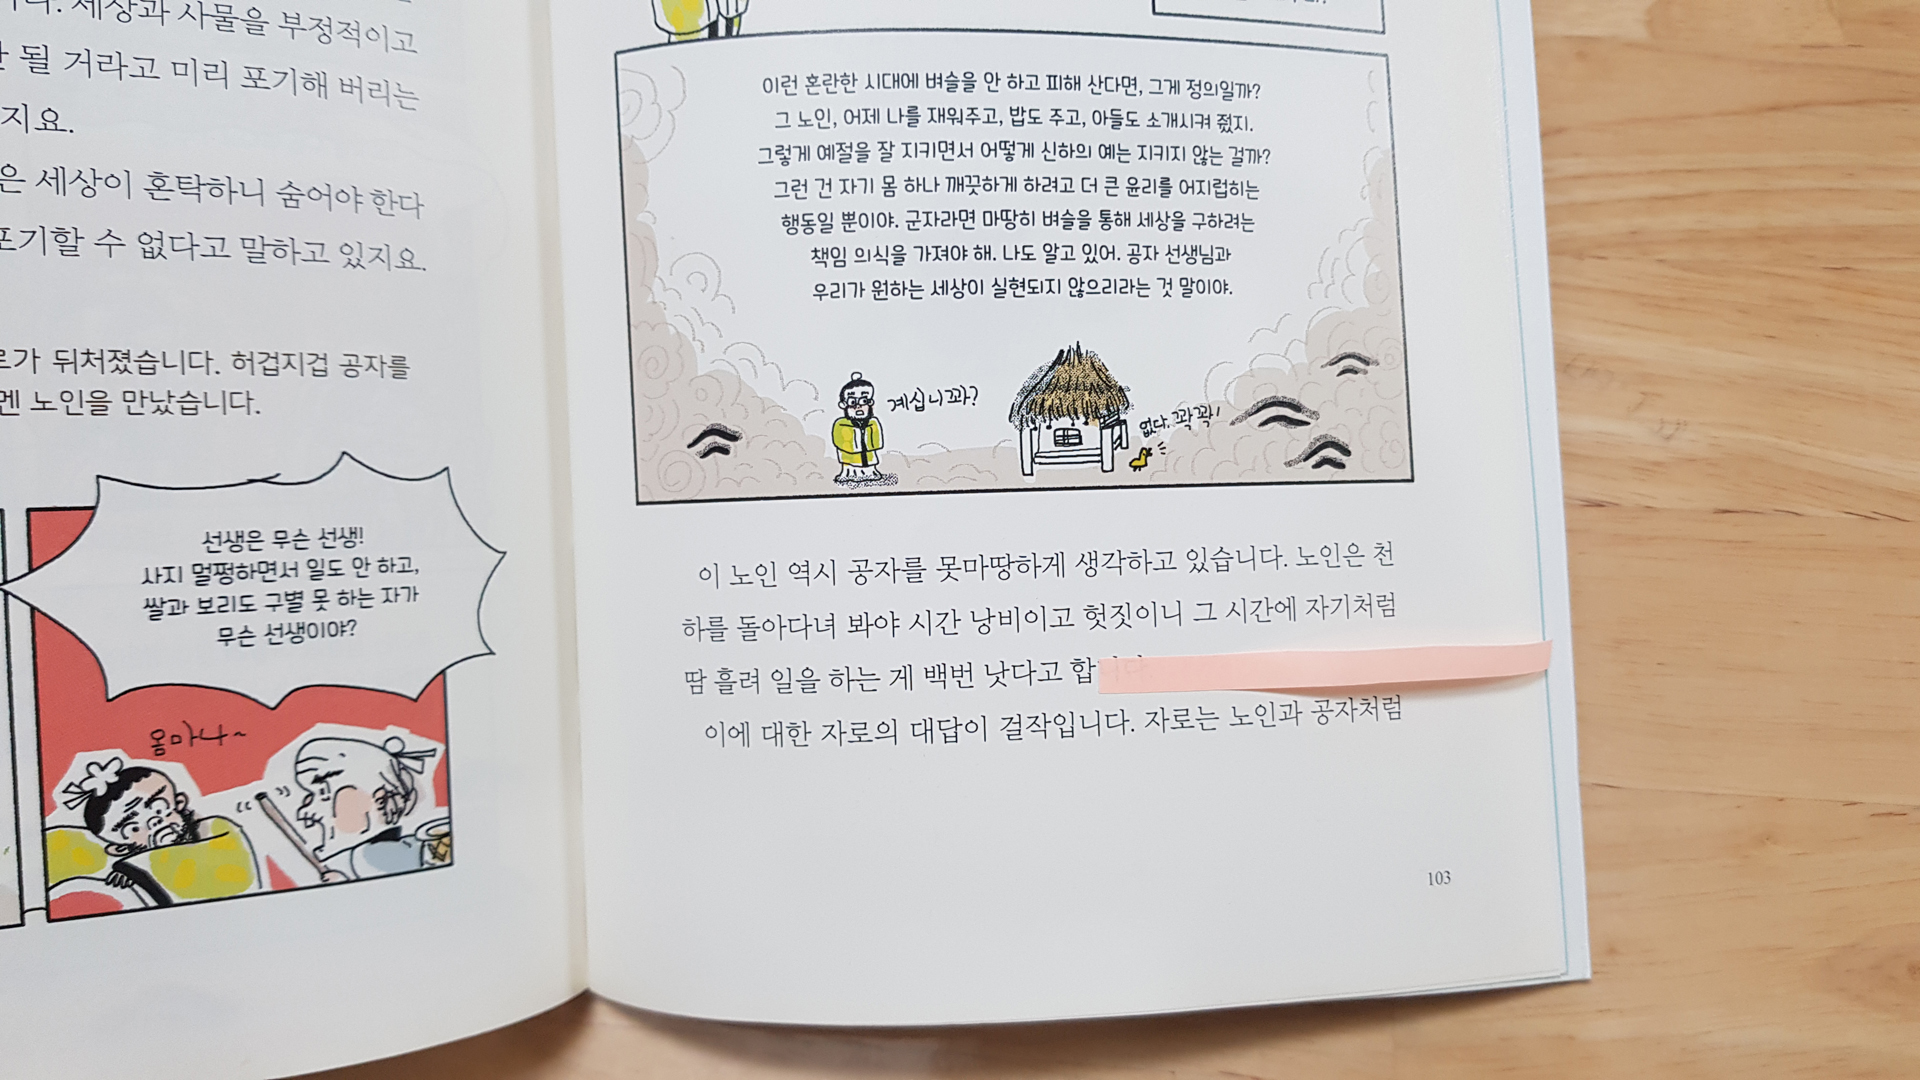 세상과 사물을 부정적이고
될 거라고 미리 포기해 버리는
지요.
은 세상이 혼탁하니 숨어야 한다
포기할 수 없다고 말하고 있지요.
가 뒤처졌습니다. 허겁지겁 공자를
멘 노인을 만났습니다.
선생은 무슨 선생!
사지 멀쩡하면서 일도 안 하고,
쌀과 보리도 구별 못 하는 자가
무슨 선생이야?
옴마나~
이런 혼란한 시대에 벼슬을 안 하고 피해 산다면, 그게 정의일까?
그 노인, 어제 나를 재워주고, 밥도 주고, 아들도 소개시켜 줬지.
그렇게 예절을 잘 지키면서 어떻게 신하의 예는 지키지 않는 걸까?
그런 건 자기 몸 하나 깨끗하게 하려고 더 큰 윤리를 어지럽히는
행동일 뿐이야. 군자라면 마땅히 벼슬을 통해 세상을 구하려는
책임 의식을 가져야 해. 나도 알고 있어. 공자 선생님과
우리가 원하는 세상이 실현되지 않으리라는 것 말이야.
계십니꽈?
없다. 꽉꽉!
이 노인 역시 공자를 못마땅하게 생각하고 있습니다. 노인은 천
하를 돌아다녀 봐야 시간 낭비이고 헛짓이니 그 시간에 자기처럼
땀 흘려 일을 하는 게 백번 낫다고 합니다.
이에 대한 자로의 대답이 걸작입니다. 자로는 노인과 공자처럼
103